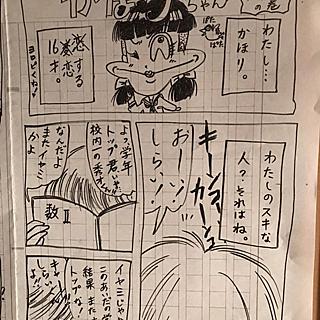 ちゃん
の巻
わたし…
かほり。
恋する
16才。
ヨロピくねっ
ぱた
ぱた
わたしのスキな
人?それはね。
キーンコーン
カーン
おーい
しらい!
よっ学年
トップ君いよっ
校内一の秀才
なんだよ
またイヤミ
かよ
数II
イヤミじゃ
このあいだの学
結果またま
トップな!
しらい